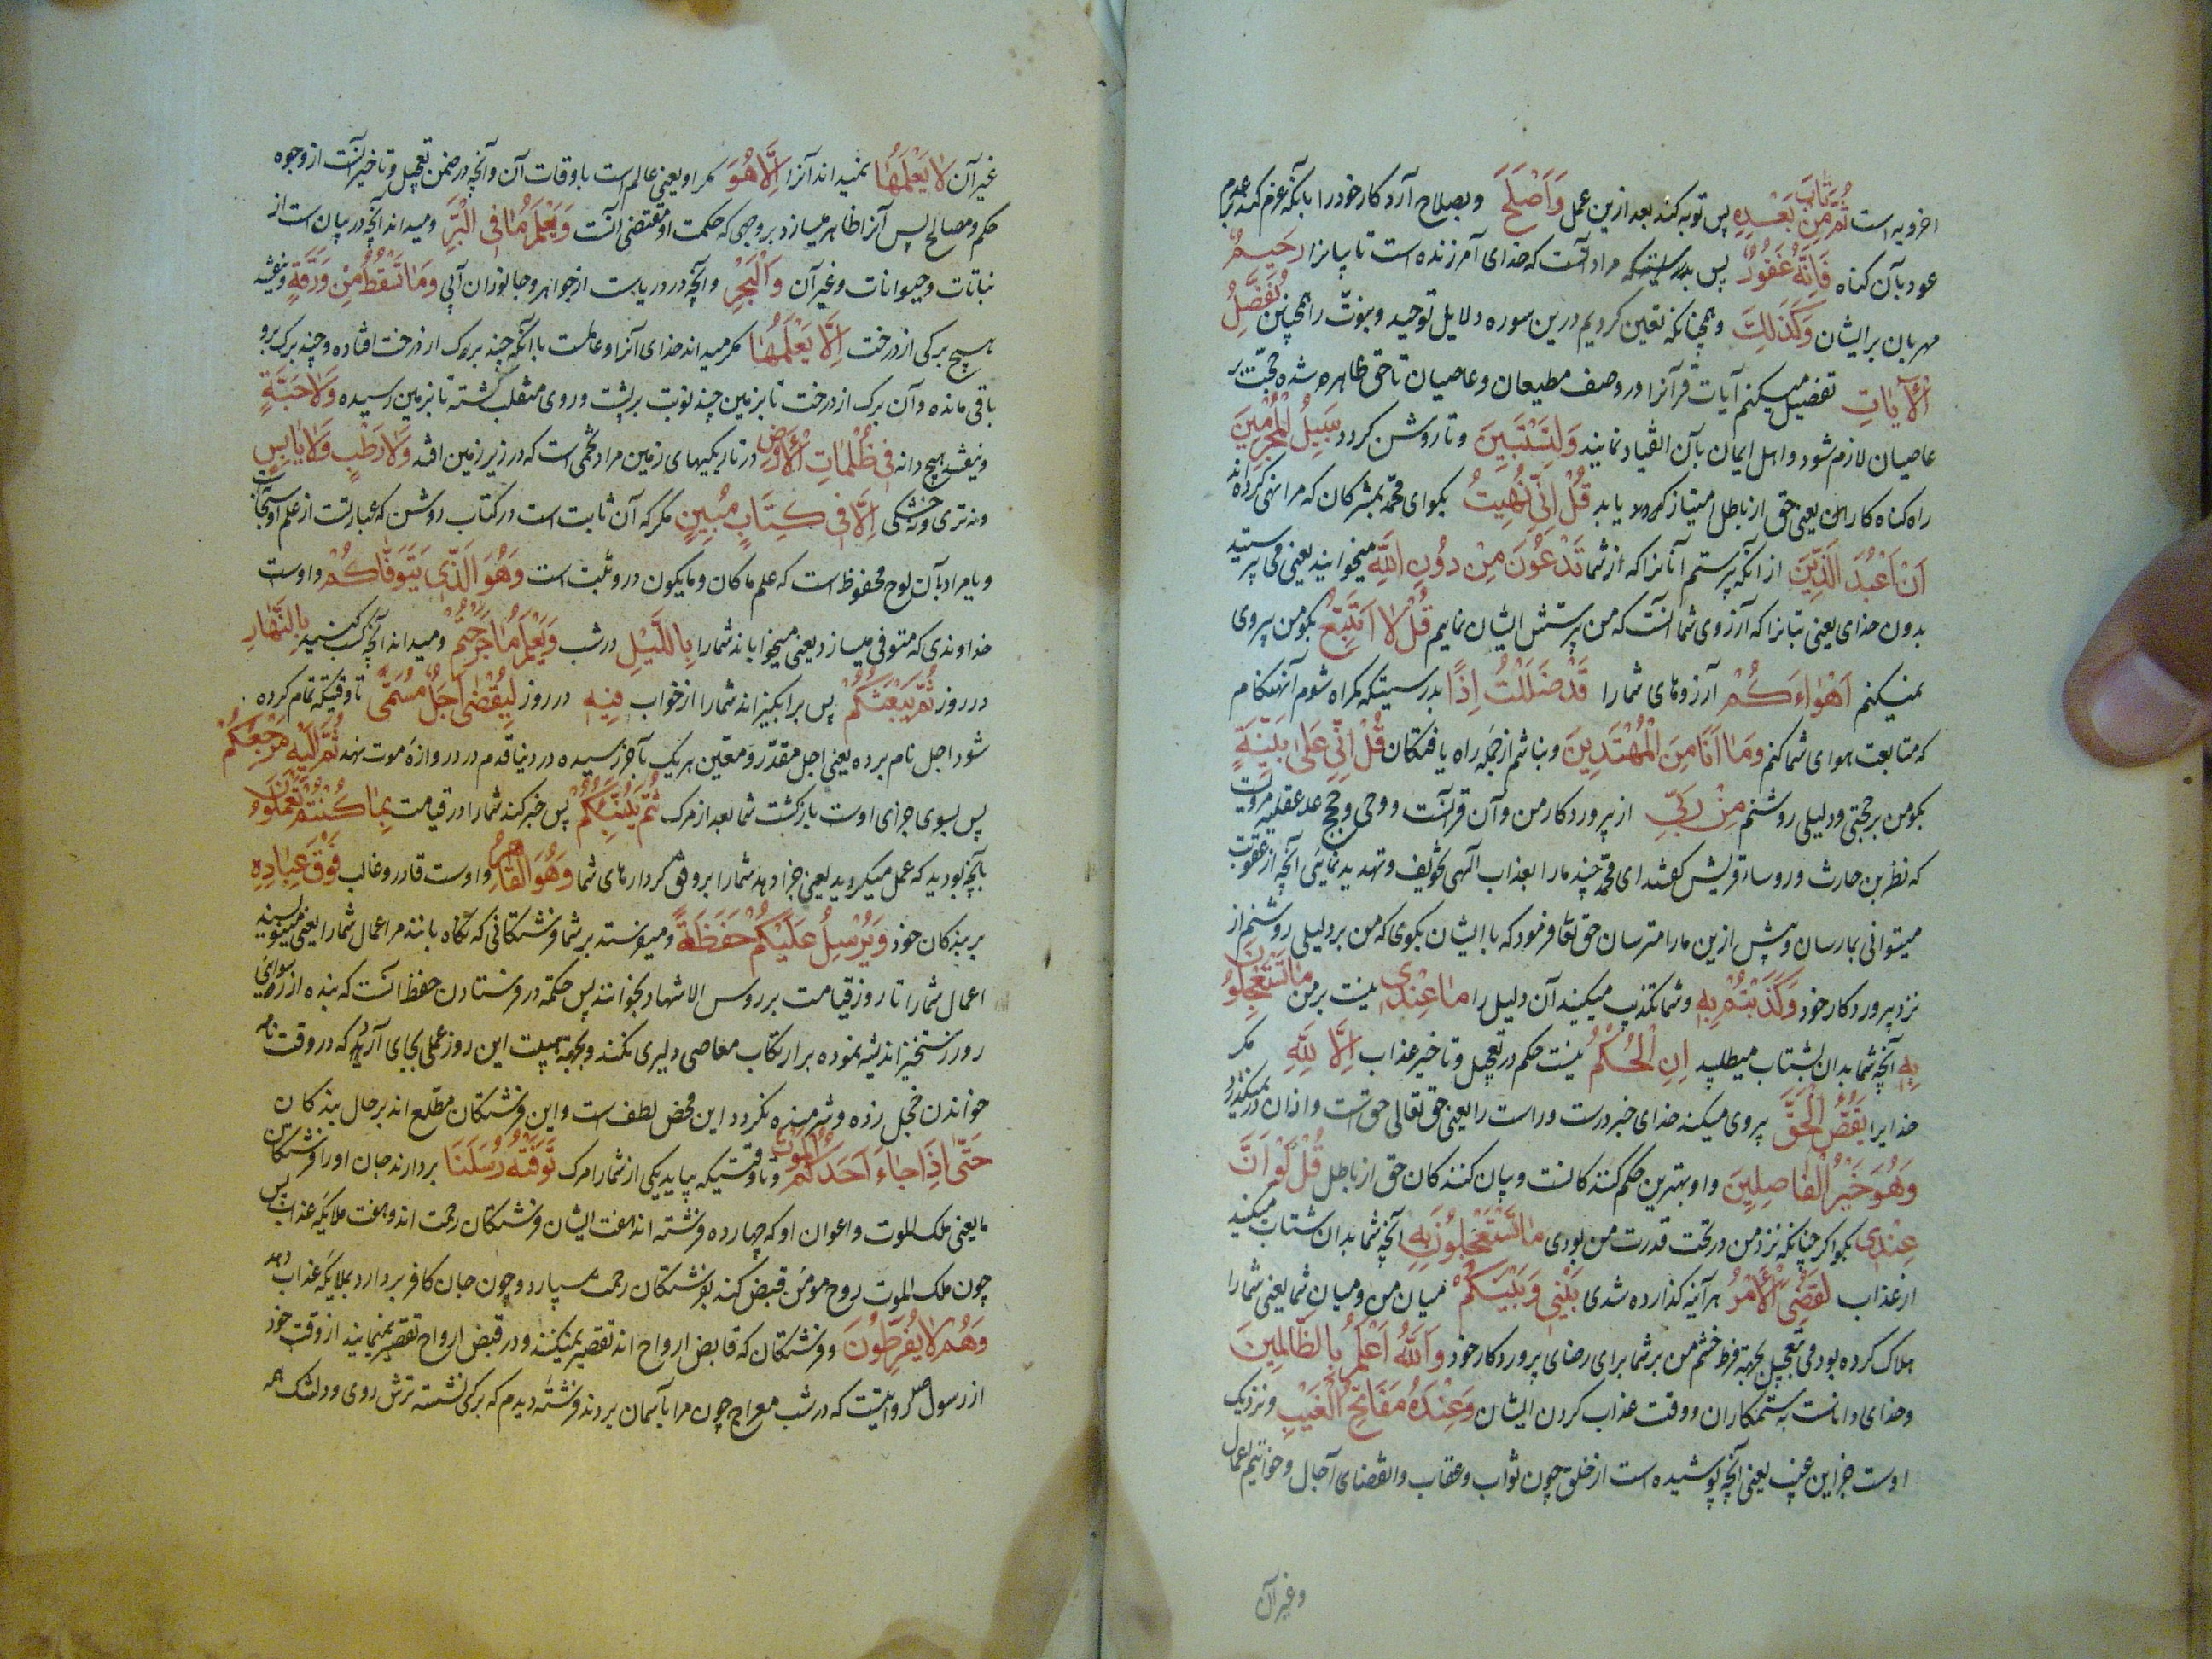 اخرویه است ثُمَّ تَابَ مِنْ بَعْدِهِ پس توبه کند بعد ازین عمل وَاَصْلَحَ وبصلاح آرد کار خود را بآنکه عزم کند بر عدم
عود بآن کناه فَاِنَّهُ غَفُورٌ پس بدرستیکه مراد آنست که خدای آمرزنده است تایبانرا رَحیمٌ
مهربان بر ایشان وَكَذٰلِكَ وهمچنانکه تعیین کردیم درین سوره دلایل توحید ونبوت را همچنین نُفَصِّلُ
الْاٰیَاتِ تفصیل میکنیم آیات قرآنرا در وصف مطیعان وعاصیان تا حق ظاهر شده حجّت بر
عاصیان لازم شود واهل ایمان بآن انقیاد نمایند وَلِتَسْتَبینَ وتا روشن کردد سَبیلُ الْمُجْرِمینَ
راه کناه کاران یعنی حق از باطل امتیاز یابد قُلْ اِنّی نُهِیتُ بکو ای محمّد بمشرکان که مرا نهی کرده اند
اَنْ اَعْبُدَ الَّذینَ از آنکه پرستم آنانرا که از شما تَدْعُونَ مِنْ دُونِ اللّٰهِ میخوانید یعنی می پرستید
بدون خدای یعنی بتانرا که آرزوی شما آنست که من پرستش ایشان نمایم قُلْ لَا اَتَّبِعُ بکو من پیروی
نمیکنم اَهْوَاءَكُمْ آرزوهای شما را قَدْ ضَلَلْتُ اِذًا بدرستیکه کمراه شوم آنهنکام
که متابعت هوای شما کنم وَمَا اَنَا مِنَ الْمُهْتَدینَ ونباشم از جمله راه یافتکان قُلْ اِنّی عَلٰی بَیِّنَةٍ
بکو من بر حجتی ودلیلی روشنم مِنْ رَبّی از پروردکار من وآن قرآنست ووحی وحجج عقلیه مرویست
که نظر بن حارث وروساء قریش کفتند ای محمّد چند ما را بعذاب الهی تخویف وتهدید نمائی آنچه از عقوبت
میتوانی بما رسان وبیش ازین ما را مترسان حق تعا فرمود که با ایشان بکوی که من بر دلیلی روشنم از
نزد پروردکار خود وَكَذَّبْتُمْ بِهِ وشما تکذیب میکنید آن دلیل را مَا عِنْدی نیست بر من مَا تَسْتَعْجِلُونَ
بِهِ آنچه شما بدان بشتاب میطلبید اِنِ الْحُكْمُ نیست حکم در تعجیل وتاخیر عذاب اِلَّا لِلّٰهِ مکر
خدایرا یَقُصُّ الْحَقَّ پیروی میکند خدای خبر درست وراست را یعنی حق تعالی حق است وازان در نمیکذرد
وَهُوَ خَیْرُ الْفَاصِلینَ واو بهترین حکم کنندکانست وبیان کنندکان حق از باطل قُلْ لَوْ اَنَّ
عِنْدی بکو اکر چنانکه نزد من ودر تحت قدرت من بودی مَا تَسْتَعْجِلُونَ بِهِ آنچه شما بدان شتاب میکنید
از عذاب لَقُضِیَ الْاَمْرُ هر آینه کذارده شدی بَیْنی وَبَیْنَكُمْ میان من ومیان شما یعنی شما را
هلاک کرده بودمی بتعجیل بجهة فرط خشم من بر شما برای رضای پروردکار خود وَاللّٰهُ اَعْلَمُ بِالظَّالِمینَ
وخدای داناست بستمکاران ووقت عذاب کردن ایشان وَعِنْدَهُ مَفَاتِحُ الْغَیْبِ ونزدیک
اوست خزاین غیب یعنی آنچه پوشیده است از خلق چون ثواب وعقاب وانقضای آجال وخواتیم اعمال
وغیر آن
غیر آن لَا یَعْلَمُهَا نمیداند آنرا اِلَّا هُوَ مکر او یعنی عالم است باوقات آن وآنچه در ضمن تعجیل وتاخیر آنست از وجوه
حکم ومصالح پس آنرا ظاهر میسازد بر وجهی که حکمت او مقتضی آنست وَیَعْلَمُ مَا فِی الْبَرِّ ومیداند آنچه در بیابان است از
نباتات وحیوانات وغیر آن وَالْبَحْرِ وآنچه در دریاست از جواهر وجانوران آبی وَمَا تَسْقُطُ مِنْ وَرَقَةٍ ونیفتد
هیچ برکی از درخت اِلَّا یَعْلَمُهَا مکر میداند خدای آنرا وعالمست باآنکه چند برک از درخت افتاده وچند برک برو
باقی مانده وآن برک از درخت تا بزمین چند نوبت بر پشت وروی منقلب کشته تا بزمین رسیده وَلَا حَبَّةٍ
ونیفتد هیچ دانه فی ظُلُمَاتِ الْاَرْضِ در تاریکیهای زمین مراد تخمی است که در زیر زمین افتد وَلَا رَطْبٍ وَلَا یَابِسٍ
ونه تری ونه خشکی اِلَّا فی كِتَابٍ مُبینٍ مکر که آن ثابت است در کتاب روشن که عبارتست از علم او سبحانه
ویا مراد بآن لوح محفوظ است که علم ما کان وما یکون درو ثبت است وَهُوَ الَّذی یَتَوَفَّاكُمْ واوست
خداوندی که متوفی میسازد یعنی میخواباند شما را بِاللَّیْلِ در شب وَیَعْلَمُ مَا جَرَحْتُمْ ومیداند آنچه کسب کنید بِالنَّهَارِ
در روز ثُمَّ یَبْعَثُكُمْ پس برانکیزاند شما را از خواب فیهِ در روز لِیُقْضٰی اَجَلٌ مُسَمًّی تا وقتیکه تمام کرده
شود اجل نام برده یعنی اجل مقدّر ومعین هر یک بآخر رسیده در دنیا قدم در دروازه موت نهد ثُمَّ اِلَیْهِ مَرْجِعُكُمْ
پس بسوی جزای اوست بازکشت شما بعد از مرک ثُمَّ یُنَبِّئُكُمْ پس خبر کند شما را در قیامت بِمَا كُنْتُمْ تَعْمَلُونَ
بآنچه بودید که عمل میکردید یعنی جزا دهد شما را بر وفق کردارهای شما وَهُوَ الْقَاهِرُ واوست قادر وغالب فَوْقَ عِبَادِهِ
بر بندکان خود وَیُرْسِلُ عَلَیْكُمْ حَفَظَةً ومیفرستد بر شما فرشتکانی که نکاه بانند مر اعمال شما را یعنی مینویسند
اعمال شما را تا روز قیامت بر رؤس الاشهاد بخوانند پس حکمة در فرستادن حفظه آنست که بنده از رسوائی
روز رستخیز اندیشه نموده بر ارتکاب معاصی دلیری نکنند وبجهة هیبت این روز عملی بجای آرد که در وقت نامه
خواندن خجل زده وشرمنده نکردد این محض لطف است واین فرشتکان مطّلع اند بر حال بندکان
حَتّٰی اِذَا جَاءَ اَحَدَكُمُ الْمَوْتُ وتا وقتیکه بیاید یکی از شما را مرک تَوَفَّتْهُ رُسُلُنَا بردارند جان او را فرشتکان
ما یعنی ملک الموت واعوان او که چهارده فرشته اند هفت ایشان فرشتکان رحمت اند وهفت ملایکه عذاب پس
چون ملک الموت روح مؤمن قبض کند بفرشتکان رحمت سپارد وچون جان کافر بردارد بملایکه عذاب دهد
وَهُمْ لَا یُفَرِّطُونَ وفرشتکان که قابض ارواح اند تقصیر نمیکنند ودر قبض ارواح تقصیر نمینمایند از وقت خود
از رسول صلم روایتست که در شب معراج چون مرا بآسمان بردند فرشته دیدم که بر کرسی نشسته ترش روی ودلتنک همه